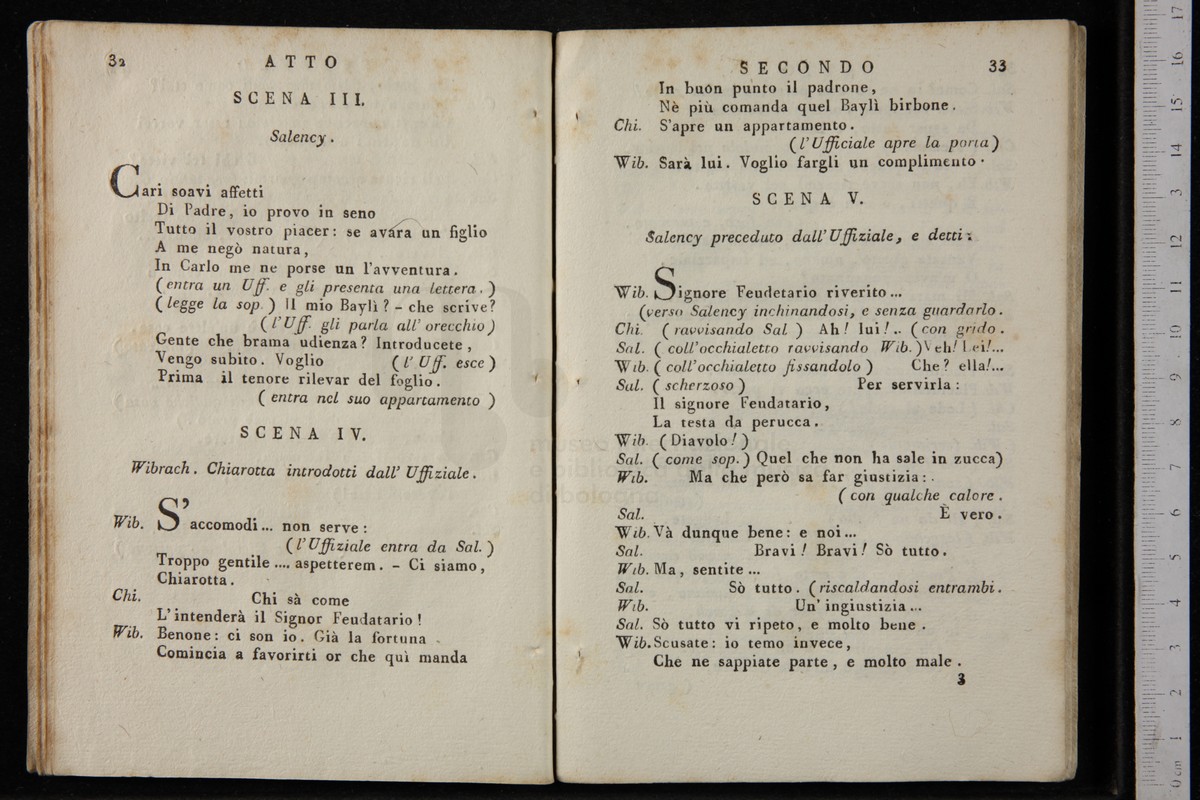 32 ATTO
SCENA III.
Salency.
Cari soavi affetti
Di Padre, io provo in seno
Tutto il vostro piacer: se avara un figlio
A me negò natura,
In Carlo me ne porse un l'avventura.
(entra un Uff. e gli presenta una lettera.)
(legge la sop.) Il mio Baylì? - che scrive?
(l'Uff. gli parla all' orecchio)
Gente che brama udienza? Introducete,
Vengo subito. Voglio (l' Uff. esce)
Prima il tenore rilevar del foglio.
(entra nel suo appartamento)
SCENA IV.
Wibrach. Chiarotta introdotti dall' Uffiziale.
Wib. S'accomodi... non serve:
(l'Uffiziale entra da Sal.)
Troppo gentile .... aspetterem. - Ci siamo,
Chiarotta.
Chi. Chi sà come
L'intenderà il Signor Feudatario!
Wib. Benone: ci son io. Già la fortuna
Comincia a favorirti or che quì manda
SECONDO 33
In buon punto il padrone,
Nè più comanda quel Baylì birbone.
Chi. S'apre un appartamento.
(l'Ufficiale apre la porta)
Wib. Sarà lui. Voglio fargli un complimento.
SCENA V.
Salency preceduto dall'Uffiziale, e detti:
Wib. Signore Feudetario riverito...
(verso Salency inchinandosi, e senza guardarlo.
Chi. (ravvisando Sal) Ah! lui!.. (con grido.
Sal. (coll'occhialetto ravvisando Wib.) Veh! Lei!...
Wib. (coll'occhialetto fissandolo) Che? ella!...
Sal. (scherzoso) Per servirla:
Il signore Feudatario,
La testa da perucca.
Wib. (Diavolo!)
Sal. (come sop.) Quel che non ha sale in zucca)
Wib. Ma che però sa far giustizia:
(con qualche calore.
Sal. È vero.
Wib. Và dunque bene: e noi...
Sal. Bravi! Bravi! Sò tutto.
Wib. Ma, sentite...
Sal. Sò tutto. (riscaldandosi entrambi.
Wib. Un' ingiustizia...
Sal. Sò tutto vi ripeto, e molto bene.
Wib. Scusate: io temo invece,
Che ne sappiate parte, e molto male.
3
museo internazionale
e biblioteca della musica
di bologna
0 cm 1 2 3 4 5 6 7 8 9 10 11 12 13 14 15 16 17